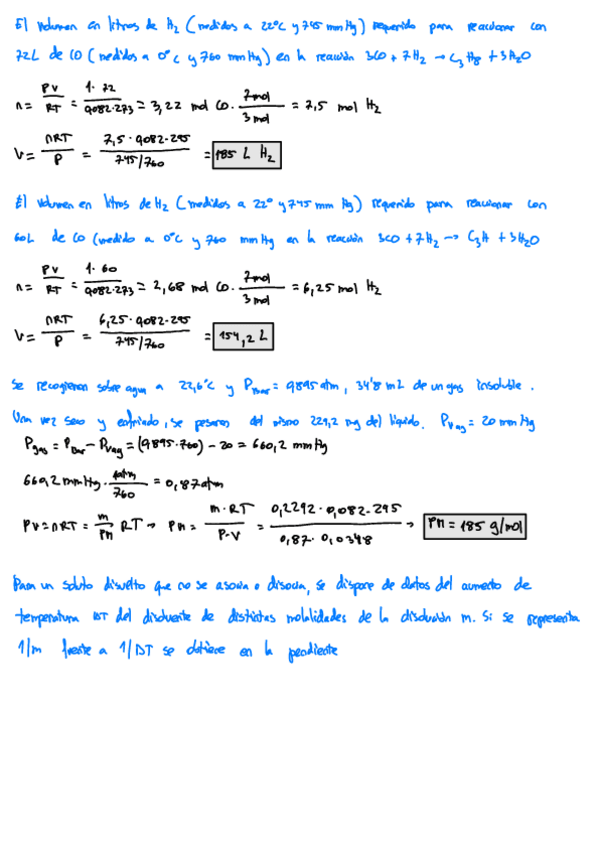 El volumen en litros de H2 (medidos a 22ºC y 745 mmHg) requerido para reaccionar con
72L de CO (medidos a 0ºC y 760 mmHg) en la reacción 3CO + 7H2 → C3H8 + 3H2O
n = PV/RT = 1·72/0,082·273 = 3,22 mol CO · 7mol/3mol = 7,5 mol H2
V = nRT/P = 7,5·0,082·295/745/760 = 185 L H2
El volumen en litros de H2 (medidos a 22º y 745 mm Hg) requerido para reaccionar con
60L de CO (medido a 0ºC y 760 mmHg en la reacción 3CO + 7H2 → C3H + 3H2O
n = PV/RT = 1·60/0,082·273 = 2,68 mol CO · 7mol/3mol = 6,25 mol H2
V = nRT/P = 6,25·0,082·295/745/760 = 154,2 L
Se recogieron sobre agua a 22,6ºC y PBar = 0,895 atm, 34'8 mL de un gas insoluble.
Una vez seco y enfriado, se pesaron del mismo 229,2 mg del líquido. PVag = 20 mmHg
Pgas = PBar - PVag = (0,895·760) - 20 = 660,2 mmHg
660,2 mmHg · 1atm/760 = 0,87 atm
PV = nRT = m/Pm RT → Pm = m·RT/P·V = 0,2292·0,082·295/0,87·0,0348 → Pm = 185 g/mol
Para un soluto disuelto que no se asocia o disocia, se dispone de datos del aumento de
temperatura ΔT del disolvente de distintas molalidades de la disolución m. Si se representa
1/m frente a 1/ΔT se obtiene en la pendiente